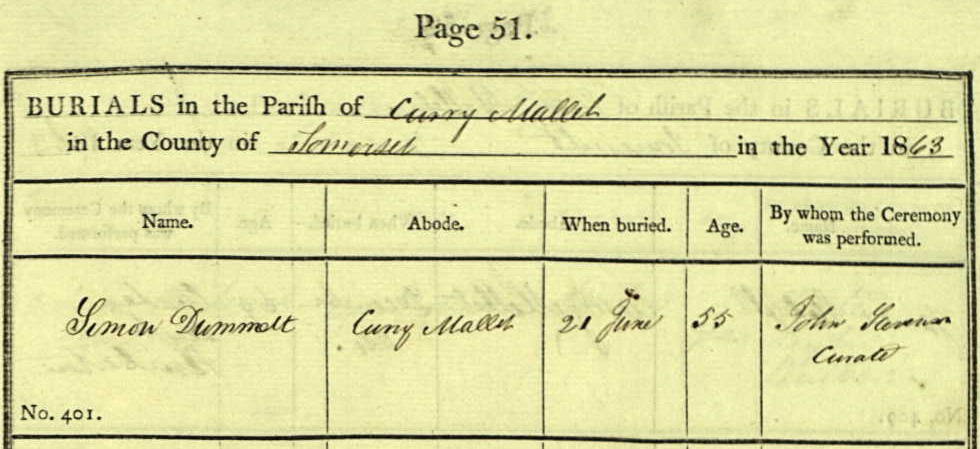 Page 51.
BURIALS in the Pariſh of Curry Mallet
in the County of Somerset in the Year 1863
Name. Abode. When buried. Age. By whom the Ceremony was performed.
Simon Dummett Curry Mallet 21 June 55 John
Curate
No. 401.